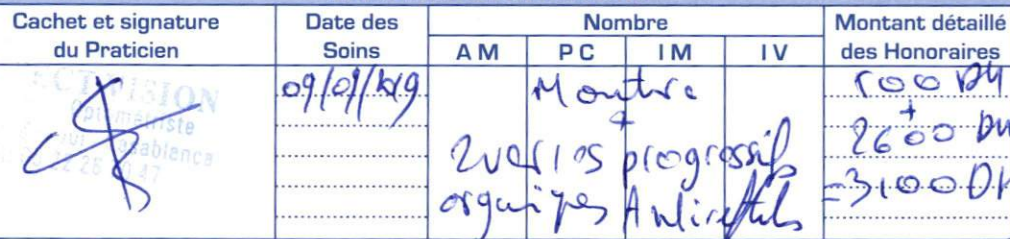 Cachet et signature du Praticien
Date des Soins
Nombre
Montant détaillé des Honoraires
A M
P C
I M
I V
Optométriste
Casablanca
Monture
500 DH
+
+
2600 DH
2 verres progressifs
organiques Antireflets
=3100 DH